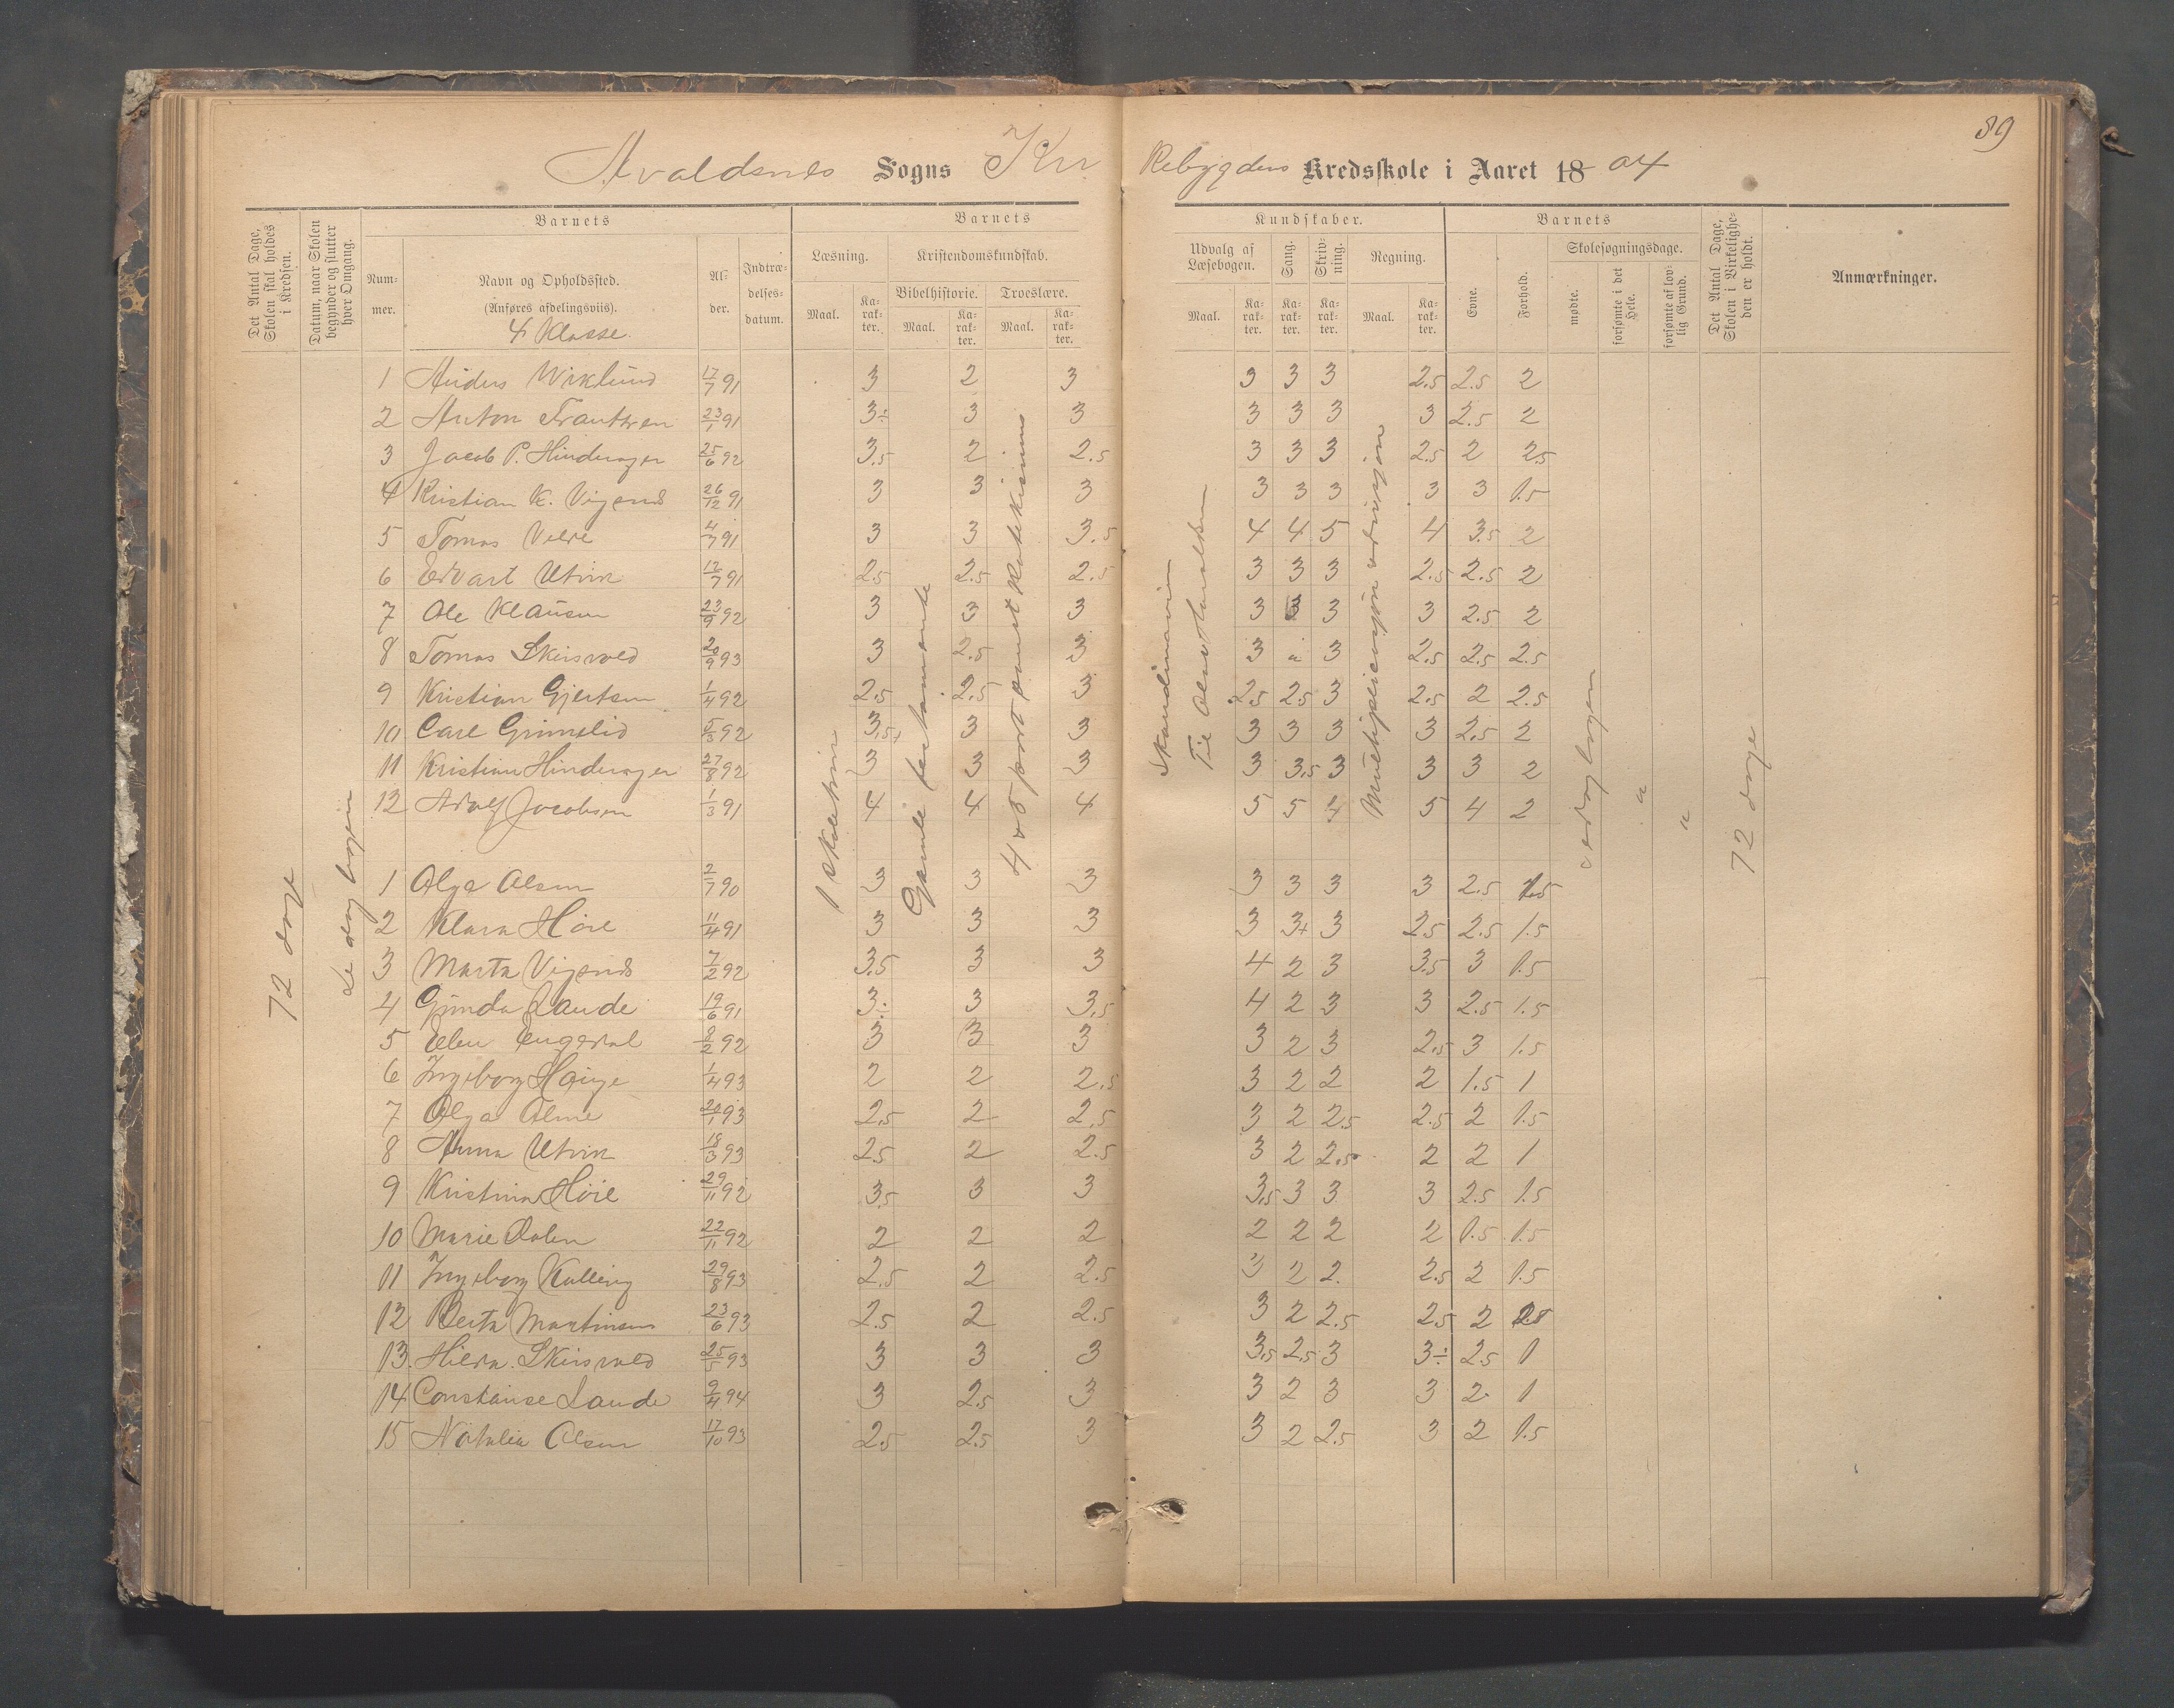 89
Avaldsnes Sogns Kre
Rebygdens Kredsskole i Aaret 18 04
Det Antal Dage, Skolen skal holdes i Kredsen.
Datum, naar Skolen begynder og slutter hver Omgang.
Barnets
Nummer.
Navn og Opholdssted.
(Anføres afdelingsviis).
4 Klasse.
Alder.
Indtrædelsesdatum.
Barnets
Læsning.
Maal.
Karakter.
Kristendomskundskab.
Bibelhistorie.
Maal.
Karakter.
Troeslære.
Maal.
Karakter.
Kundskaber.
Udvalg af Læsebogen.
Maal.
Karakter.
Sang.
Karakter.
Skrivning.
Karakter.
Regning.
Maal.
Karakter.
Barnets
Evne.
Forhold.
Skolesøgningsdage.
mødte.
forsømte i det Hele.
forsømte af lovlig Grund.
Det Antal Dage, Skolen i Virkeligheden er holdt.
Anmærkninger.
72 dage
Se dagbogen
Gamle testamente
Skandinavien
Multiplikasjon
72 dage
1 Anders Wiklund 17/7 91 3 2 3 3 3 3 2.5 2.5 2
2 Anton 23/1 91 3÷ 3 3 3 3 3 3 2.5 2
3 Jacob P. Hinderager 25/6 92 3.5 2 2.5 3 3 3 2.5 2 2.5
4 Kristian K. Vigsnes 26/12 91 3 3 3 3 3 3 3 3 1.5
5 Tomas 4/7 91 3 3 3.5 4 4 5 4 3.5 2
6 Edvart Utvik 17/7 91 2.5 2.5 2.5 3 3 3 2.5 2.5 2
7 Ole Klausen 23/9 92 3 3 3 3 3 3 3 2.5 2
8 Tomas Skeisvold 20/9 93 3 2.5 3 3 " 3 2.5 2.5 2.5
9 Kristian Gjertsen 1/4 92 2.5 2.5 3 2.5 2.5 3 2.5 2 2.5
10 Carl Grimslid 5/3 92 3.5+ 3 3 3 3 3 3 2.5 2
11 Kristian Hinderager 27/8 92 3 3 3 3 3.5 3 3 3 2
12 Adolf Jacobsen 1/3 91 4 4 4 5 5 4 5 4 2
1 Olga Olsen 2/7 90 3 3 3 3 3 3 3 2.5 1.5
2 Klara Høie 11/4 91 3 3 3 3 3+ 3 2.5 2.5 1.5
3 Marta Vigsnes 7/2 92 3.5 3 3 4 2 3 3.5 3 1.5
4 Gunda Lande 19/6 91 3÷ 3 3.5 4 2 3 3 2.5 1.5
5 Elen 8/2 92 3 3 3 3 2 3 2.5 3 1.5
6 Ingeborg Hauge 1/4 93 2 2 2.5 3 2 2 2 1.5 1
7 Olga 20/1 93 2.5 2 2.5 3 2 2.5 2.5 2 1.5
8 Anna Utvik 18/3 93 2.5 2 2.5 3 2 2.5 2 2 1
9 Kristina Høie 29/11 92 3.5 3 3 3.5 3 3 3 2.5 1.5
10 Marie Dalen 22/11 92 2 2 2 2 2 2 2 1.5 1.5
11 Ingeborg Kolling 29/8 93 2.5 2 2.5 3 2 2. 2.5 2 1.5
12 Berta Martinsen 23/6 93 2.5 2 2.5 3 2 2.5 2.5 2
13. Hilda. Skeisvold 25/5 93 3 3 3 3.5 2.5 3 3÷ 2.5 1
14 Constanse Lande 9/4 94 3 2.5 3 3 2 3 3 2 1
15 Natalia Olsen 17/10 93 2.5 2.5 3 3 2 2.5 3 2 1.5